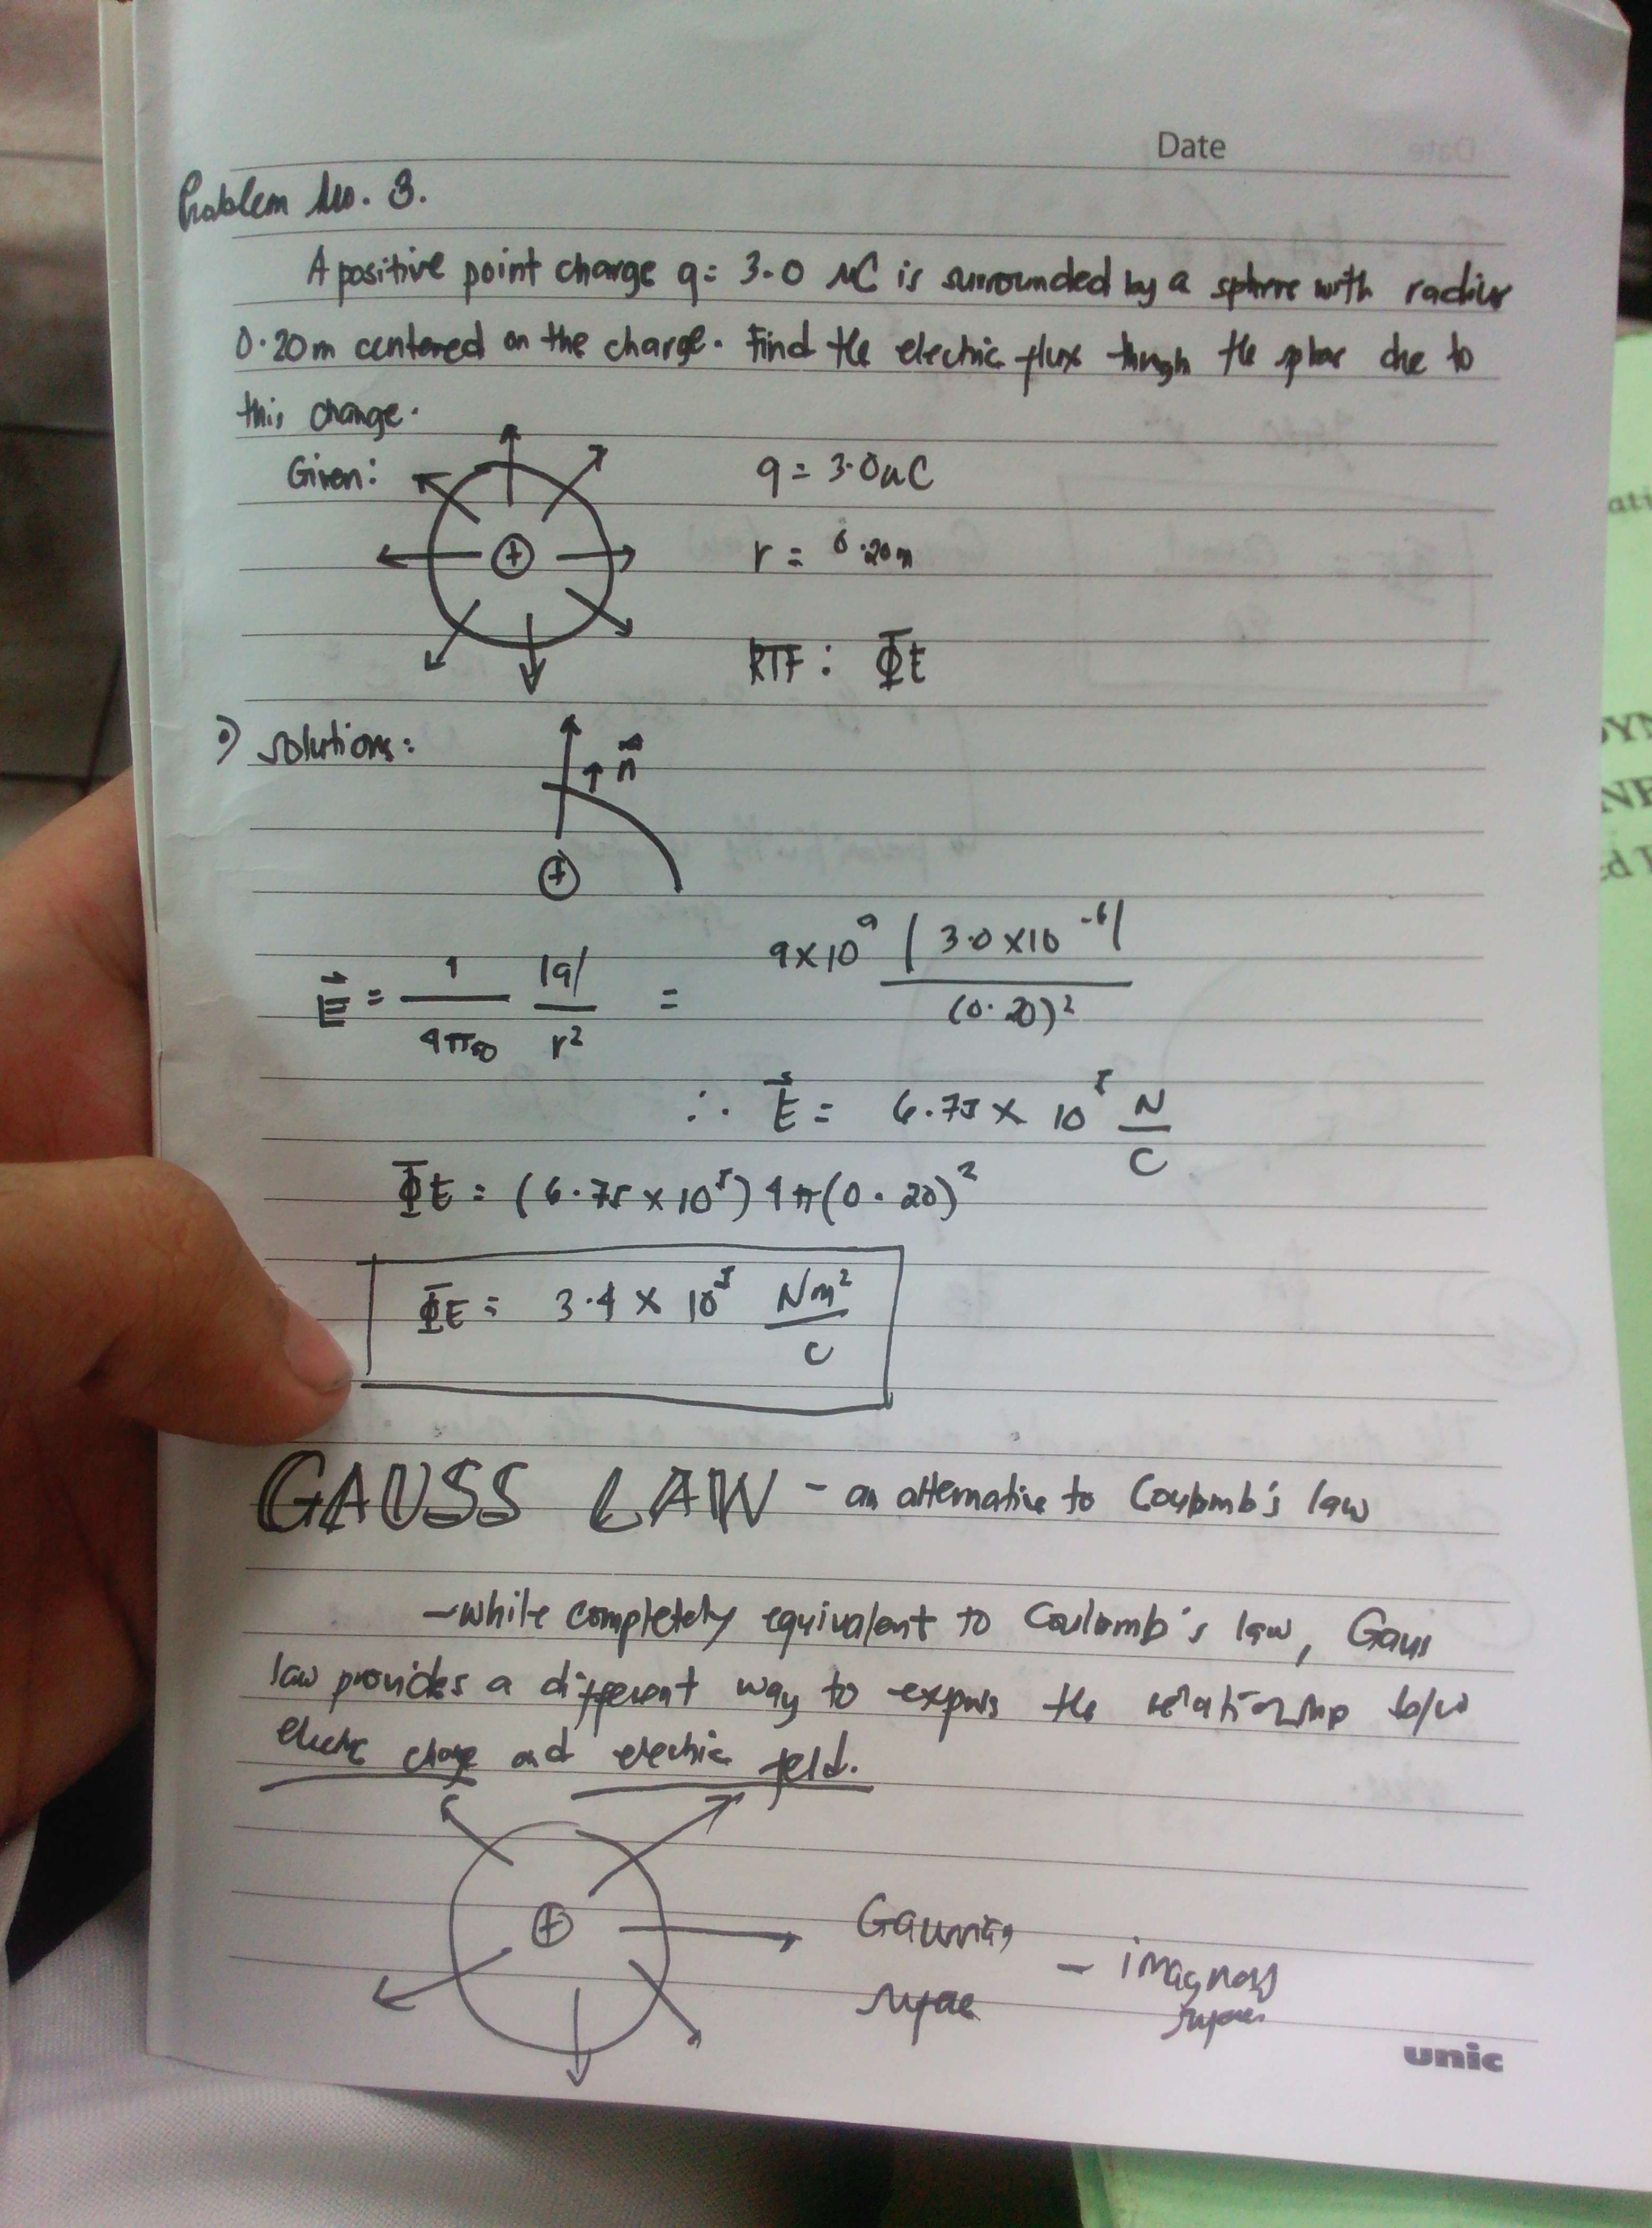 Date
Problem No. 3.
A positive point charge q = 3.0 μC is surrounded by a sphere with radius
0.20m centered on the charge. Find the electric flux through the sphere due to
this charge.
Given:
q = 3.0uC
r = 0.20m
RTF: ΦE
Solutions:
n
+
E = 1/4πε0 |q|/r² = 9x10⁹ (3.0 x10⁻⁶)/(0.20)²
∴ E = 6.75 x 10⁵ N/C
ΦE = (6.75 x 10⁵) 4π(0.20)²
ΦE = 3.4 x 10⁵ Nm²/C
GAUSS LAW - an alternative to Coulomb's law
- while completely equivalent to Coulomb's law, Gauss
law provides a different way to express the relationship b/w
electric charge and electric field.
+
Gaussian - imaginary
surface surface
unic